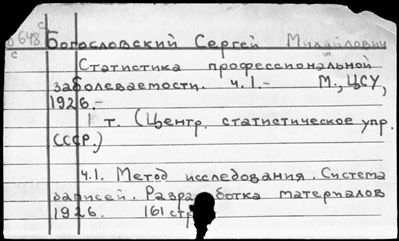 с
648 Богословский Сергей Михайлович
с
Статистика профессиональной
заболеваемости. ч.1.- М., ЦСУ,
1926.-
1 т. (Центр. статистическое упр.
СССР.)
ч.1. Метод исследования. Система
записей. Разработка материалов
1926. 161 стр